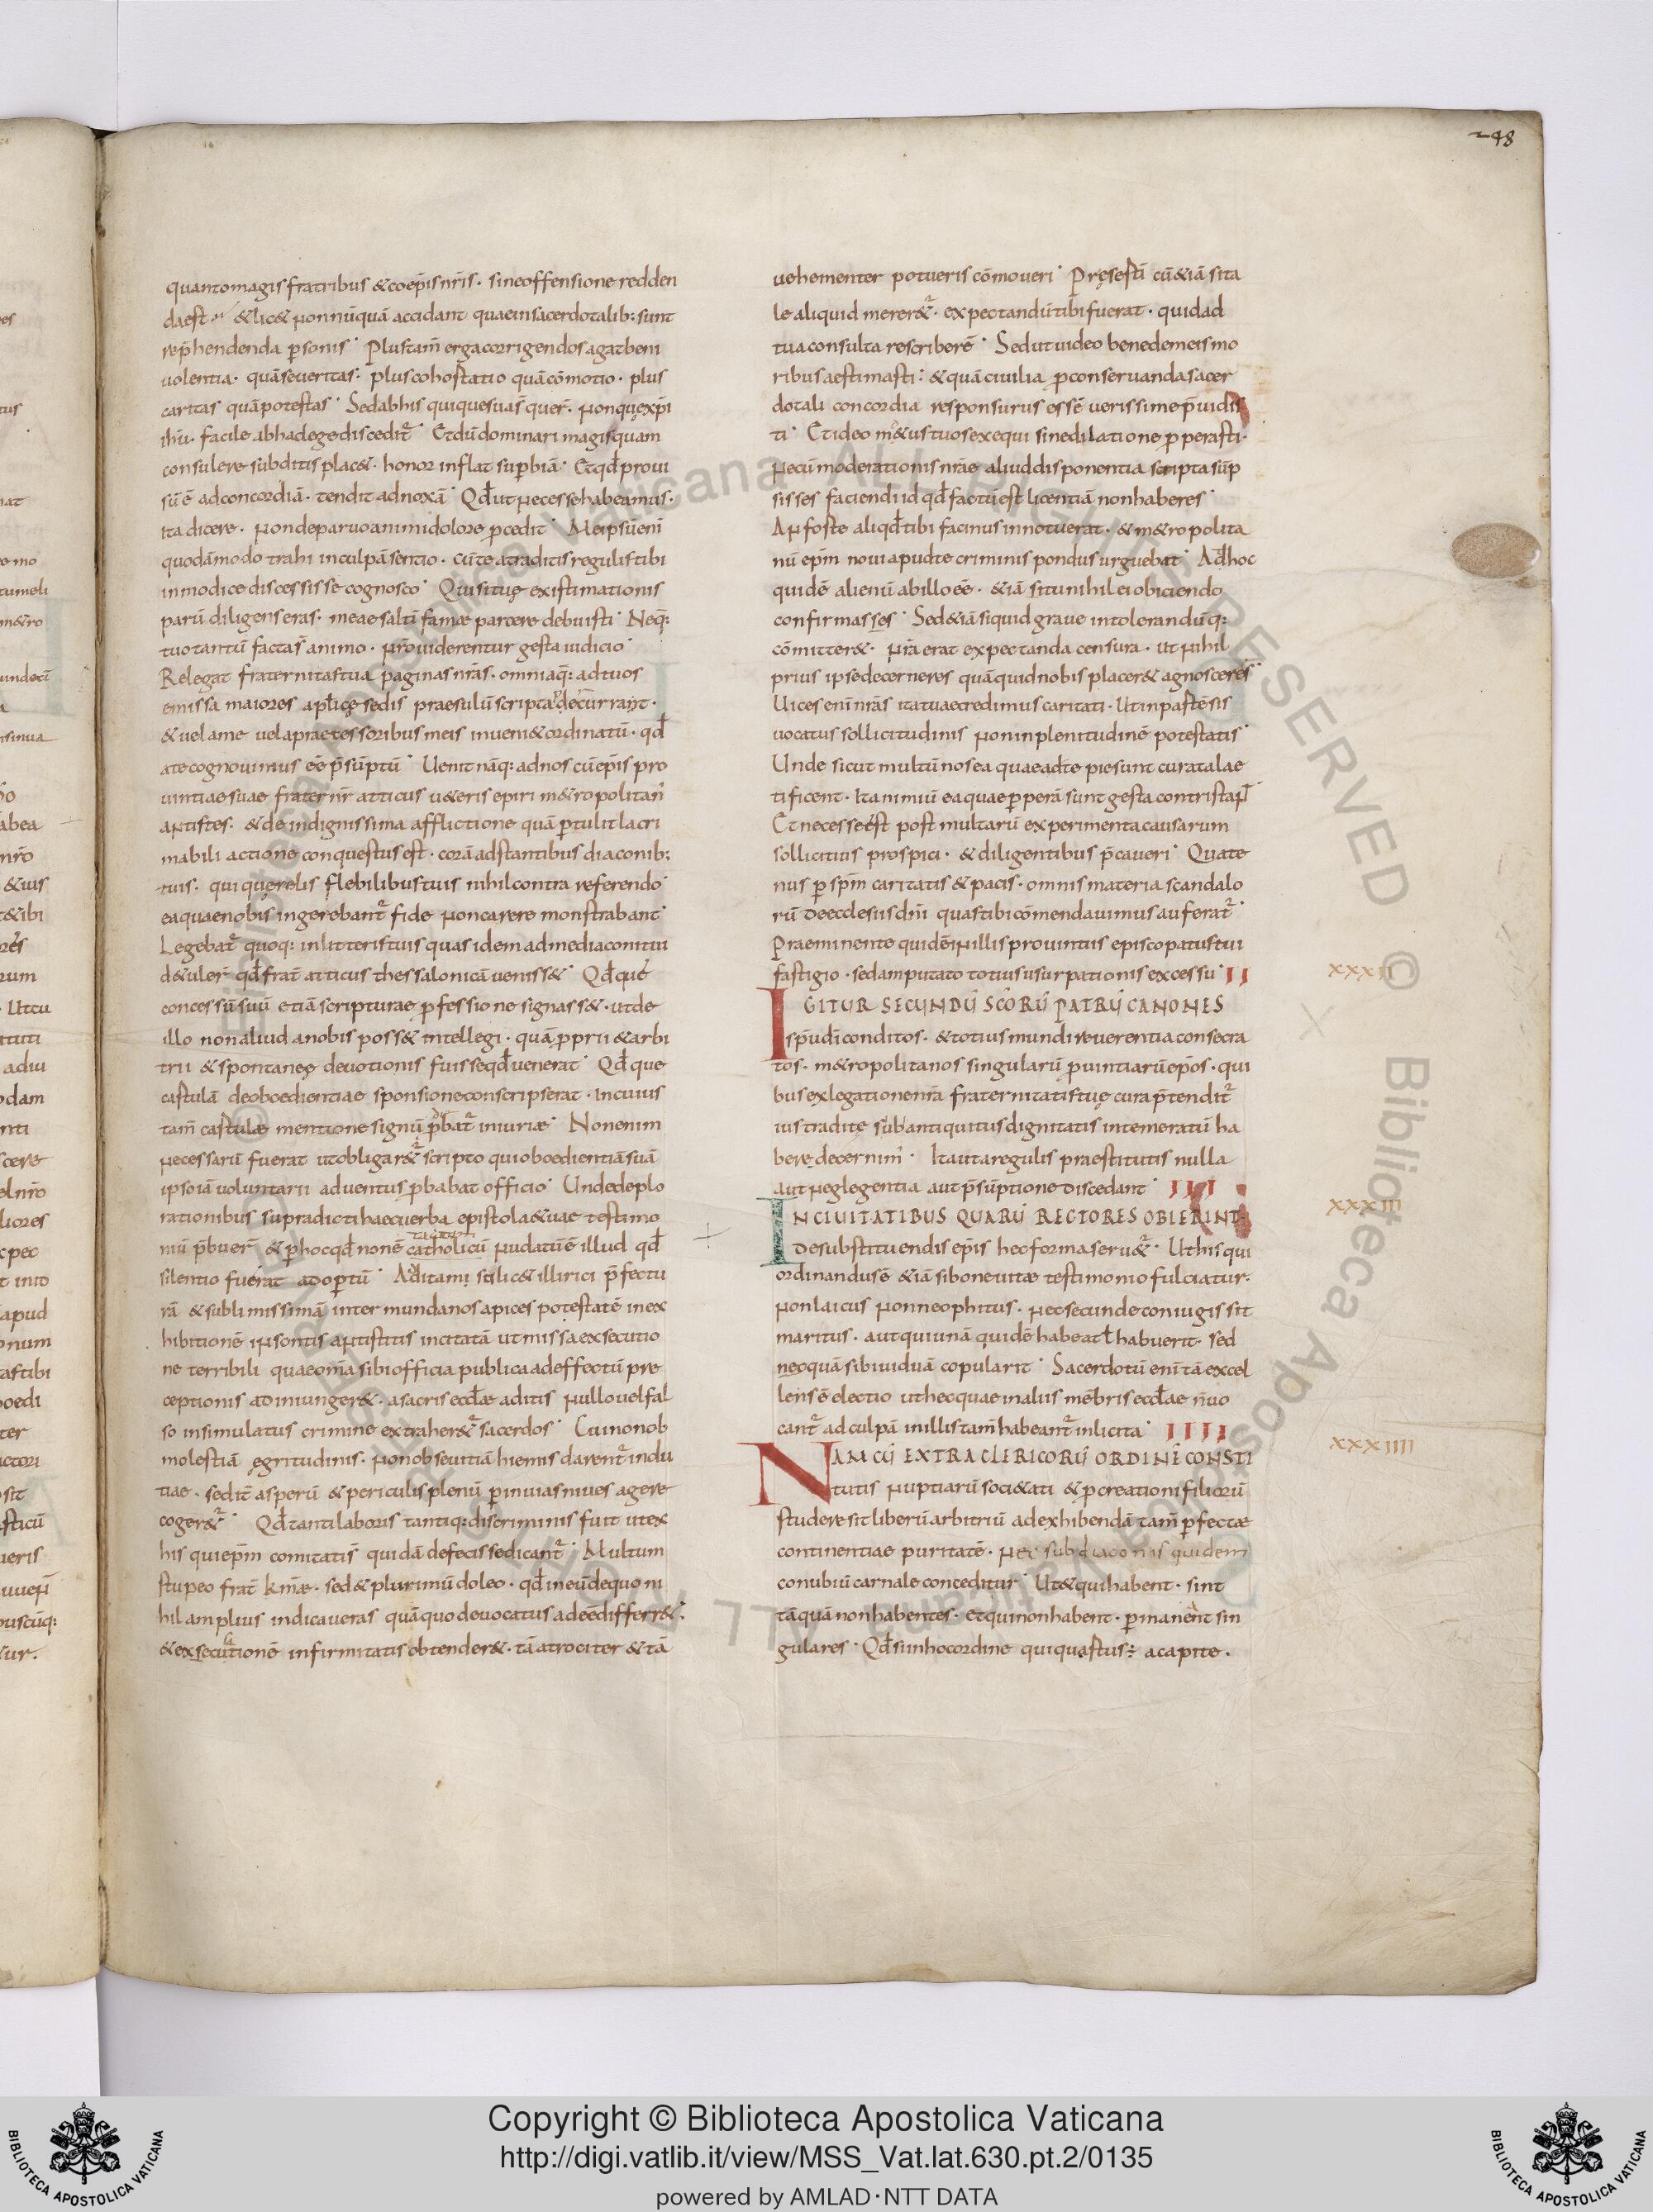 248
quantomagis fratribus & coep̄is nr̄is · sine offensione redden
da est · & lic& nonnūquā accidant quae in sacerdotalib: sunt
rep̄hendenda p̱sonis · Plus tam̄ erga corrigendos agat beni
uolentia · quā seueritas · plus cohortatio quā cōmotio · plus
caritas quā potestas · Sed ab his qui quę sua s̄ quer̄ · non quę xp̄i
ih̄u · facile ab hac lege discedit̄ · Et dū dominari magis quam
consulere subditis plac& · honor inflat sup̱biā · Et qd̄ proui
sū ē ad concordiā · tendit ad noxā · Qd̄ ut necesse habeamus ·
ita dicere · non de paruo animi dolore p̱cedit · Me ipsū eni
quodāmodo trahi in culpā sentio · cū te a traditis regulis tibi
inmodice discessisse cognosco · Qui si tuę existimationis
parū diligens eras · meae saltī famae parcere debuisti · Neq:
tuo tantū factas animo · nr̄o uiderentur gesta iudicio
Relegat fraternitas tua paginas nr̄as · omniaq: ad tuos
emissa maiores apl̄icę sedis praesulū scripta decurrant ·
& uel a me uel a praecessoribus meis inueni& ordinatū · qd̄
a te cognouimus eē p̄sūptū · Uenit nāq: ad nos cū ep̄is pro
uintiae suae frater nr̄ atticus u&eris epiri m&ropolitan̄
antistes · & de indignissima afflictione quā p̱tulit lacri
mabili actione conquestus est · corā adstantibus diaconib:
tuis · qui querelis flebilibus tuis nihil contra referendo
ea quae nobis ingerebant̄ fide non carere monstrabant ·
Legebat̄ quoq: in litteris tuis quas idem ad me diaconi tui
d&uler̄ qd̄ frat̄ atticus thessalonicā ueniss& · Qd̄ que
concessū suū etiā scripturae p̱fessione signass& · ut de
illo non aliud a nobis poss& intellegi · quā p̱prii & arbi
trii & spontaneę deuotionis fuisse qd̄ uenerat · Qd̄ que
cartulā de oboedientiae sponsione conscripserat · In cuius
tam̄ cartulae mentione signū p̱bat̄ iniuriae · Non enim
necessariū fuerat ut obligar&̄ scripto qui oboedientiā suā
ipso iā uoluntarii aduentus p̱babat officio · Unde deplo
rationibus supradicti haec uerba epistolae tuae testimo
niū p̄buer̄ & p̱ hoc qd̄ non ē catholicū nudatū ē illud qd̄
silentio fuerat adopertū · Aditam scilic& illirici p̄fectu
rā & sublimissimā inter mundanos apices potestatē in ex
hibitionē insontis antistitis incitatā ut missa exsecutio
ne terribili quae om̄a sibi officia publica ad effectū pre
ceptionis adiunger& · a sacris eccl̄ae aditis nullo uel fal
so insimulatus crimine extraher&̄ sacerdos · Cui non ob
molestiā ęgritudinis · non ob seuitiā hiemis darent̄ indu
tiae · sed it̄ asperū & periculis plenū p̱ inuias niues agere
coger&̄ · Qd̄ tanti laboris tantiq: discriminis fuit ut ex
his qui ep̄m comitati s̄ quidā defecisse dicant̄ · Multum
stupeo frat̄ k̄me · sed & plurimū doleo · qd̄ in eū de quo ni
hil amplius indicaueras quā quo deuocatus adeē differr& ·
& exsecutionē infirmitatis obtender& · tā atrociter & tā
uehementer potueris cōmoueri · Pręsertī cū & iā si ta
le aliquid merer&̄ · expectandū tibi fuerat · quid ad
tua consulta rescriberē · Sed ut uideo bene de meis mo
ribus aestimasti · & quā ciuilia p̱ conseruanda sacer
dotali concordia responsurus essē uerissime p̄uidis
ti · Et ideo m&us tuos exequi sine dilatione p̱perasti ·
ne cū moderationis nr̄ae aliud disponentia scripta sūp
sisses faciendi id qd̄ factū est licentiā non haberes ·
An forte aliqd̄ tibi facinus innotuerat · & m&ropolita
nū ep̄m noui apud te criminis pondus urguebat · Ad hoc
quidē alienū ab illo eē · & iā si tu nihil ei obiciendo
confirmasses · Sed & iā si quid graue intolerandūq:
cōmitter& · nr̄a erat expectanda censura · ut nihil
prius ipse decerneres quā quid nobis placer& agnosceres ·
Uices enī nr̄as ita tuae credimus caritati · Ut in partē sis
uocatus sollicitudinis non in plenitudinē potestatis ·
Unde sicut multū nos ea quae a dte pie sunt curata lae
tificent · Ita nimiū ea quae p̱perā sunt gesta contristan̄
Et necesse est post multarū experimenta causarum
sollicitius prospici · & diligentibus p̄caueri · Quate
nus p̱ sp̄m caritatis & pacis · omnis materia scandalo
rū de ecclesiis dn̄i quas tibi cōmendauimus auferat̄ ·
Praeminente quidē in illis prouintiis episcopatus tui
fastigio · sed amputato totius usurpationis excessu · II
XXXII
IGITUR SECUNDŪ SCŌRŪ PATRŪ CANONES
sp̄u dī conditos · & totius mundi reuerentia consecra
tos · m&ropolitanos singularū p̱uintiarū ep̄os · qui
bus ex legatione nr̄a fraternitatis tuę cura p̄tendit̄
ius traditę sub antiquitus dignitatis intemeratū ha
bere decernim̄ · Ita ut a regulis praestitutis nulla
aut neglegentia aut p̄sūptione discedant · III
XXXIII
IN CIUITATIBUS QUARŪ RECTORES OBIERINT
De substituendis ep̄is hec forma seru&̄ · Ut his qui
ordinandus ē & iā si bone uitae testimonio fulciatur ·
non laicus non neophitus · nec secunde coniugis sit
maritus · aut qui unā quidē habeat ł habuerit · sed
nec quā sibi uiduā copularit · Sacerdotū enī tā excel
lens ē electio ut hec quae in aliis mēbris eccl̄ae n̄ uo
cant̄ ad culpā in illis tam̄ habeant̄ inlicita · IIII
XXXIIII
NAM CŪ EXTRA CLERICORŪ ORDINĒ CONSTI
tutis nuptiarū soci&ati & p̱creationi filiorū
studere sit liberū arbitriū ad exhibendā tam̄ p̱fectae
continentiae puritatē · nec subdiaconis quidem
conubiū carnale conceditur · Ut & qui habent · sint
tāquā non habentes · et qui non habent · p̱maneant sin
gulares · Qd̄ si in hoc ordine qui quartus : a capite ·
Copyright © Biblioteca Apostolica Vaticana
http://digi.vatlib.it/view/MSS_Vat.lat.630.pt.2/0135
powered by AMLAD·NTT DATA
BIBLIOTECA APOSTOLICA VATICANA
BIBLIOTECA APOSTOLICA VATICANA